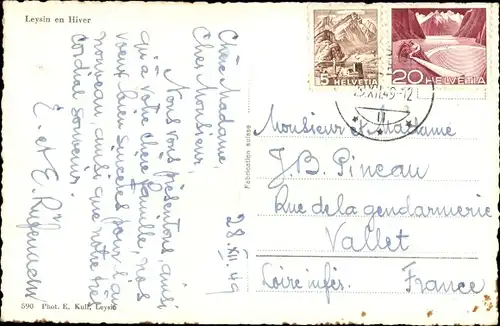 Leysin en Hiver
Chère Madame,
Cher Monsieur,
Nous vous présentons, ainsi
qu'à votre chère famille, nos
voeux bien sincères pour l'an
nouveau, ainsi que notre très
cordial souvenir.
E. et E.
28.XII.49
590 Phot. E. Kull, Leysin
Fabrication suisse
5 HELVETIA
20 HELVETIA
XII.49-12
Monsieur et Madame
J.B. Pineau
Rue de la gendarmerie
Vallet
Loire infér. France